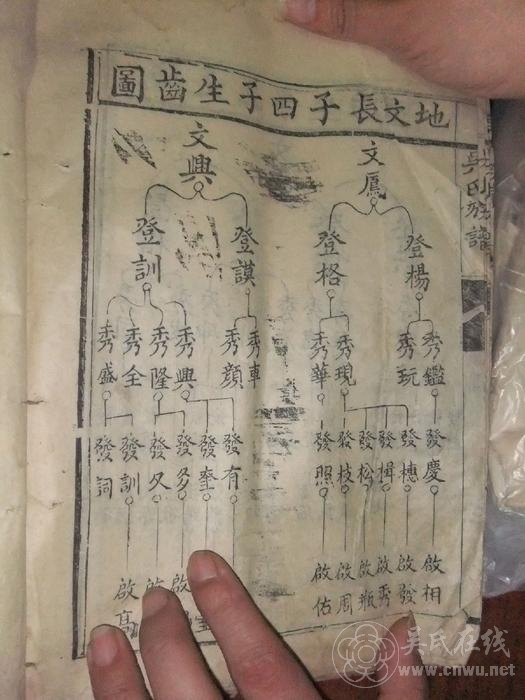 地文長子四子生齒圖
吳氏族譜
文鳳
文興
登楊
登格
登謨
登訓
秀鑑
秀玩
秀現
秀華
秀車
秀顏
秀興
秀隆
秀全
秀盛
發慶
發穗
發楫
發松
發枝
發照
發有
發奎
發多
發久
發訓
發詞
啟相
啟發
啟秀
啟瓶
啟周
啟估
啟
啟
啟高
吴氏在线
www.cnwu.net